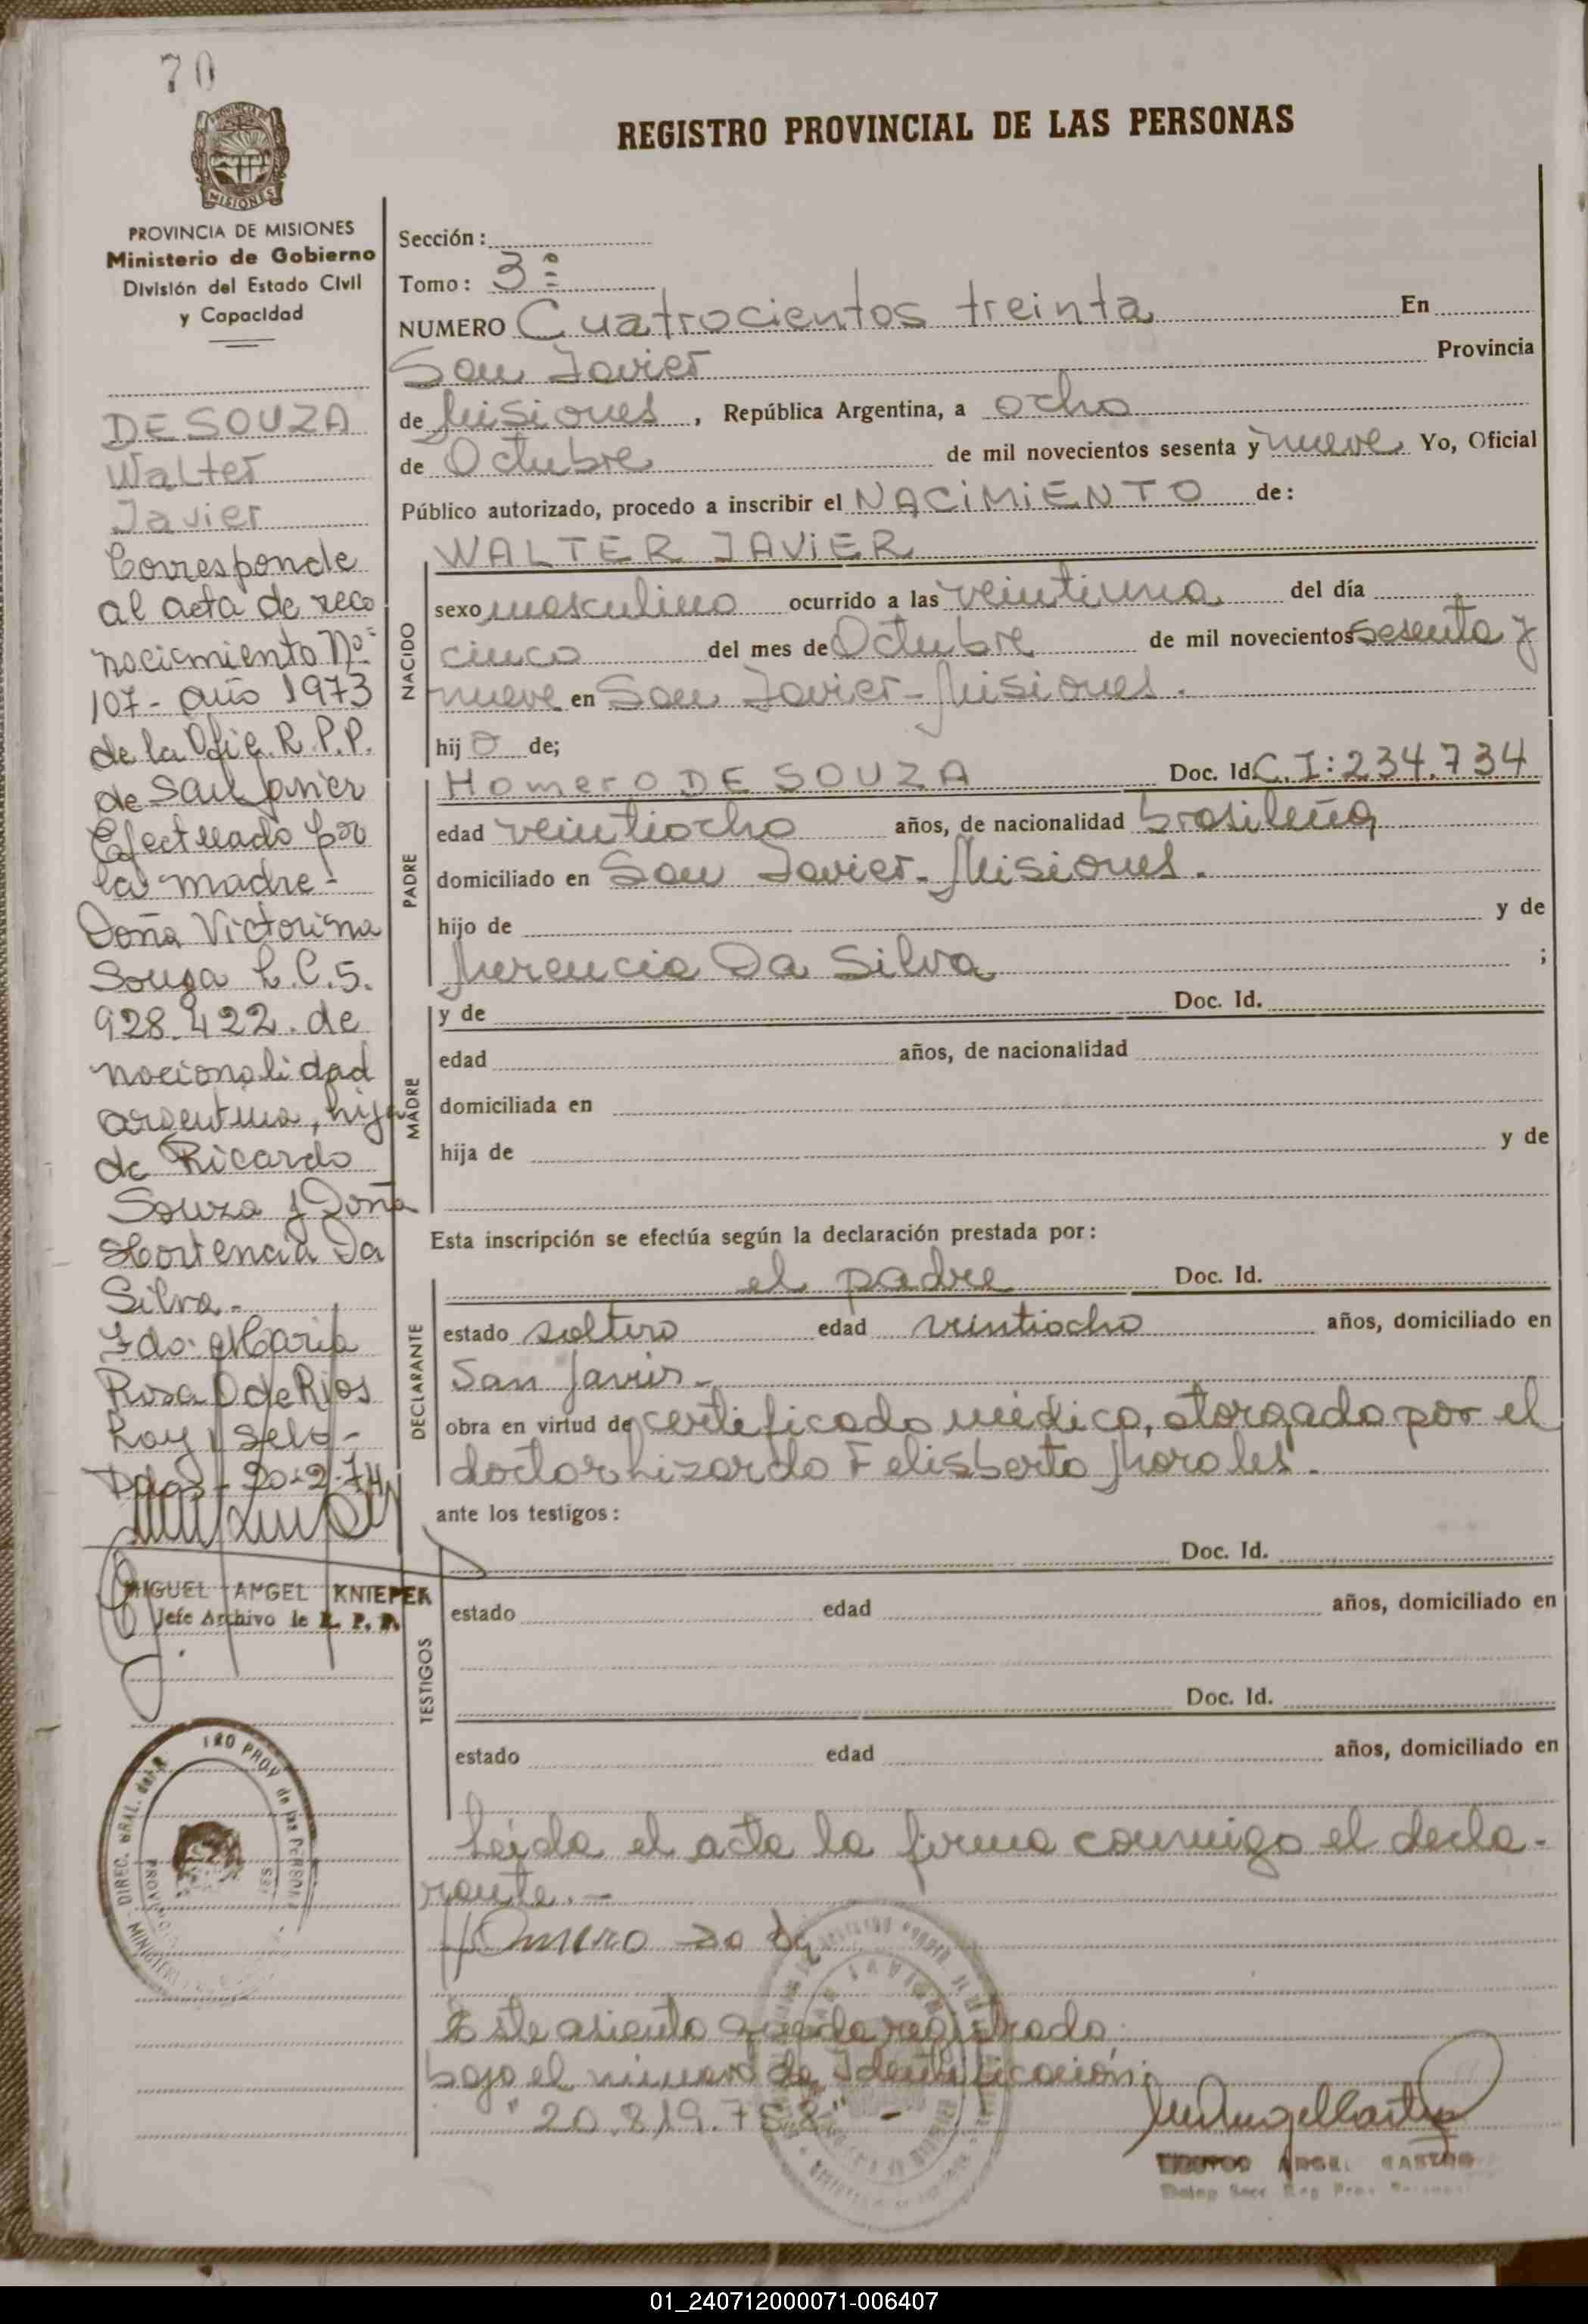 70
REGISTRO PROVINCIAL DE LAS PERSONAS
MISIONES
PROVINCIA DE MISIONES
Ministerio de Gobierno
División del Estado Civil
y Capacidad
DE SOUZA
Walter
Javier
Corresponde
al acta de reco
nocicmiento Nº
107- año 1973
de la Ofic. R.P.P.
de San Javier
Efectuado por
la madre-
Doña Victorina
Souza L.C.5.
928.422. de
nacionalidad
argentina, hija
de Ricardo
Souza y Doña
Hortencia Da
Silva.-
Fdo: Maria
Rosa O de Rios
Hay 1 sello-
Pdas- 20-2-74
MIGUEL ANGEL KNIEPER
Jefe Archivo de R. P. P.
Sección:
Tomo: 3º
NUMERO Cuatrocientos treinta En
San Javier Provincia
de Misiones, República Argentina, a ocho
de Octubre de mil novecientos sesenta y nueve Yo, Oficial
Público autorizado, procedo a inscribir el NACIMIENTO de:
NACIDO
WALTER JAVIER
sexo masculino ocurrido a las veintiuna del día
cinco del mes de Octubre de mil novecientos sesenta y
nueve en San Javier-Misiones.
hijo de;
PADRE
Homero DE SOUZA Doc. Id. C.I: 234.734
edad veintiocho años, de nacionalidad brasileña
domiciliado en San Javier-Misiones.
hijo de y de
Merencia Da Silva ;
MADRE
y de Doc. Id.
edad años, de nacionalidad
domiciliada en
hija de y de
Esta inscripción se efectúa según la declaración prestada por:
DECLARANTE
el padre Doc. Id.
estado soltero edad veintiocho años, domiciliado en
San Javier-
obra en virtud de certificado médico, otorgado por el
doctor Lizardo Felisberto Morales.
ante los testigos:
TESTIGOS
Doc. Id.
estado edad años, domiciliado en
Doc. Id.
estado edad años, domiciliado en
Leída el acta la firma conmigo el decla-
rante.-
Este asiento queda registrado
bajo el número de Identificación:
"20.819.758" -
01_240712000071-006407